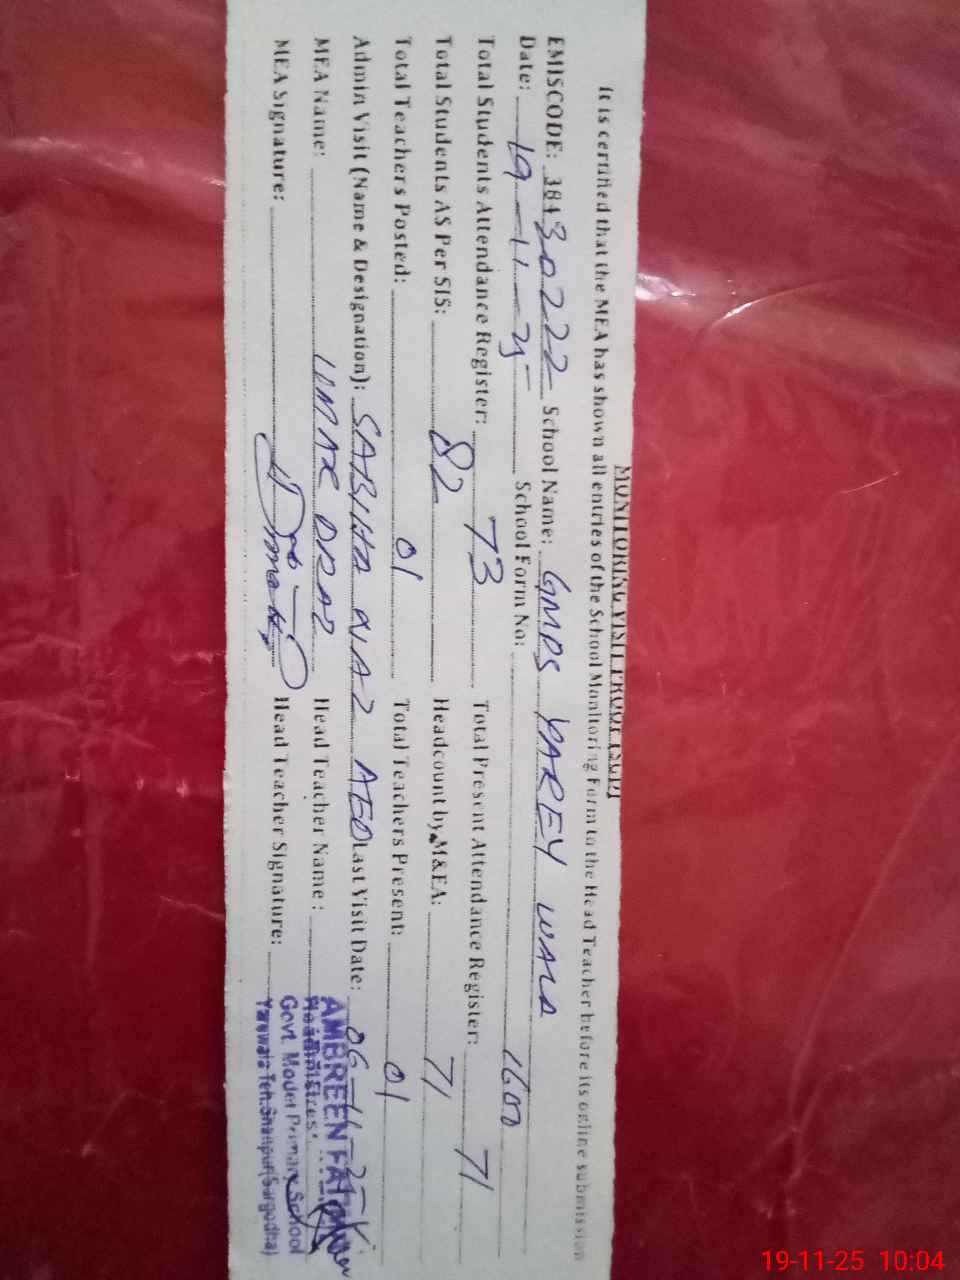 MONITORING VISIT PROOF (SCP)
It is certified that the MEA has shown all entries of the School Monitoring Form to the Head Teacher before its online submission
EMISCODE: 38430222 School Name: GMPS YAREY WALA
Date: 19-11-25 School Form No: 1600
Total Students Attendance Register: 73 Total Present Attendance Register: 71
Total Students AS Per SIS: 82 Headcount by M&EA: 71
Total Teachers Posted: 01 Total Teachers Present: 01
Admin Visit (Name & Designation): SABIHA NIAZ AEO Last Visit Date: 06-11-25
MEA Name: UMAR DRAZ Head Teacher Name :
MEA Signature: Head Teacher Signature:
AMBREEN
Headmistress
Govt. Model Primary School
Yarewala Teh.Shahpur(Sargodha)
19-11-25 10:04